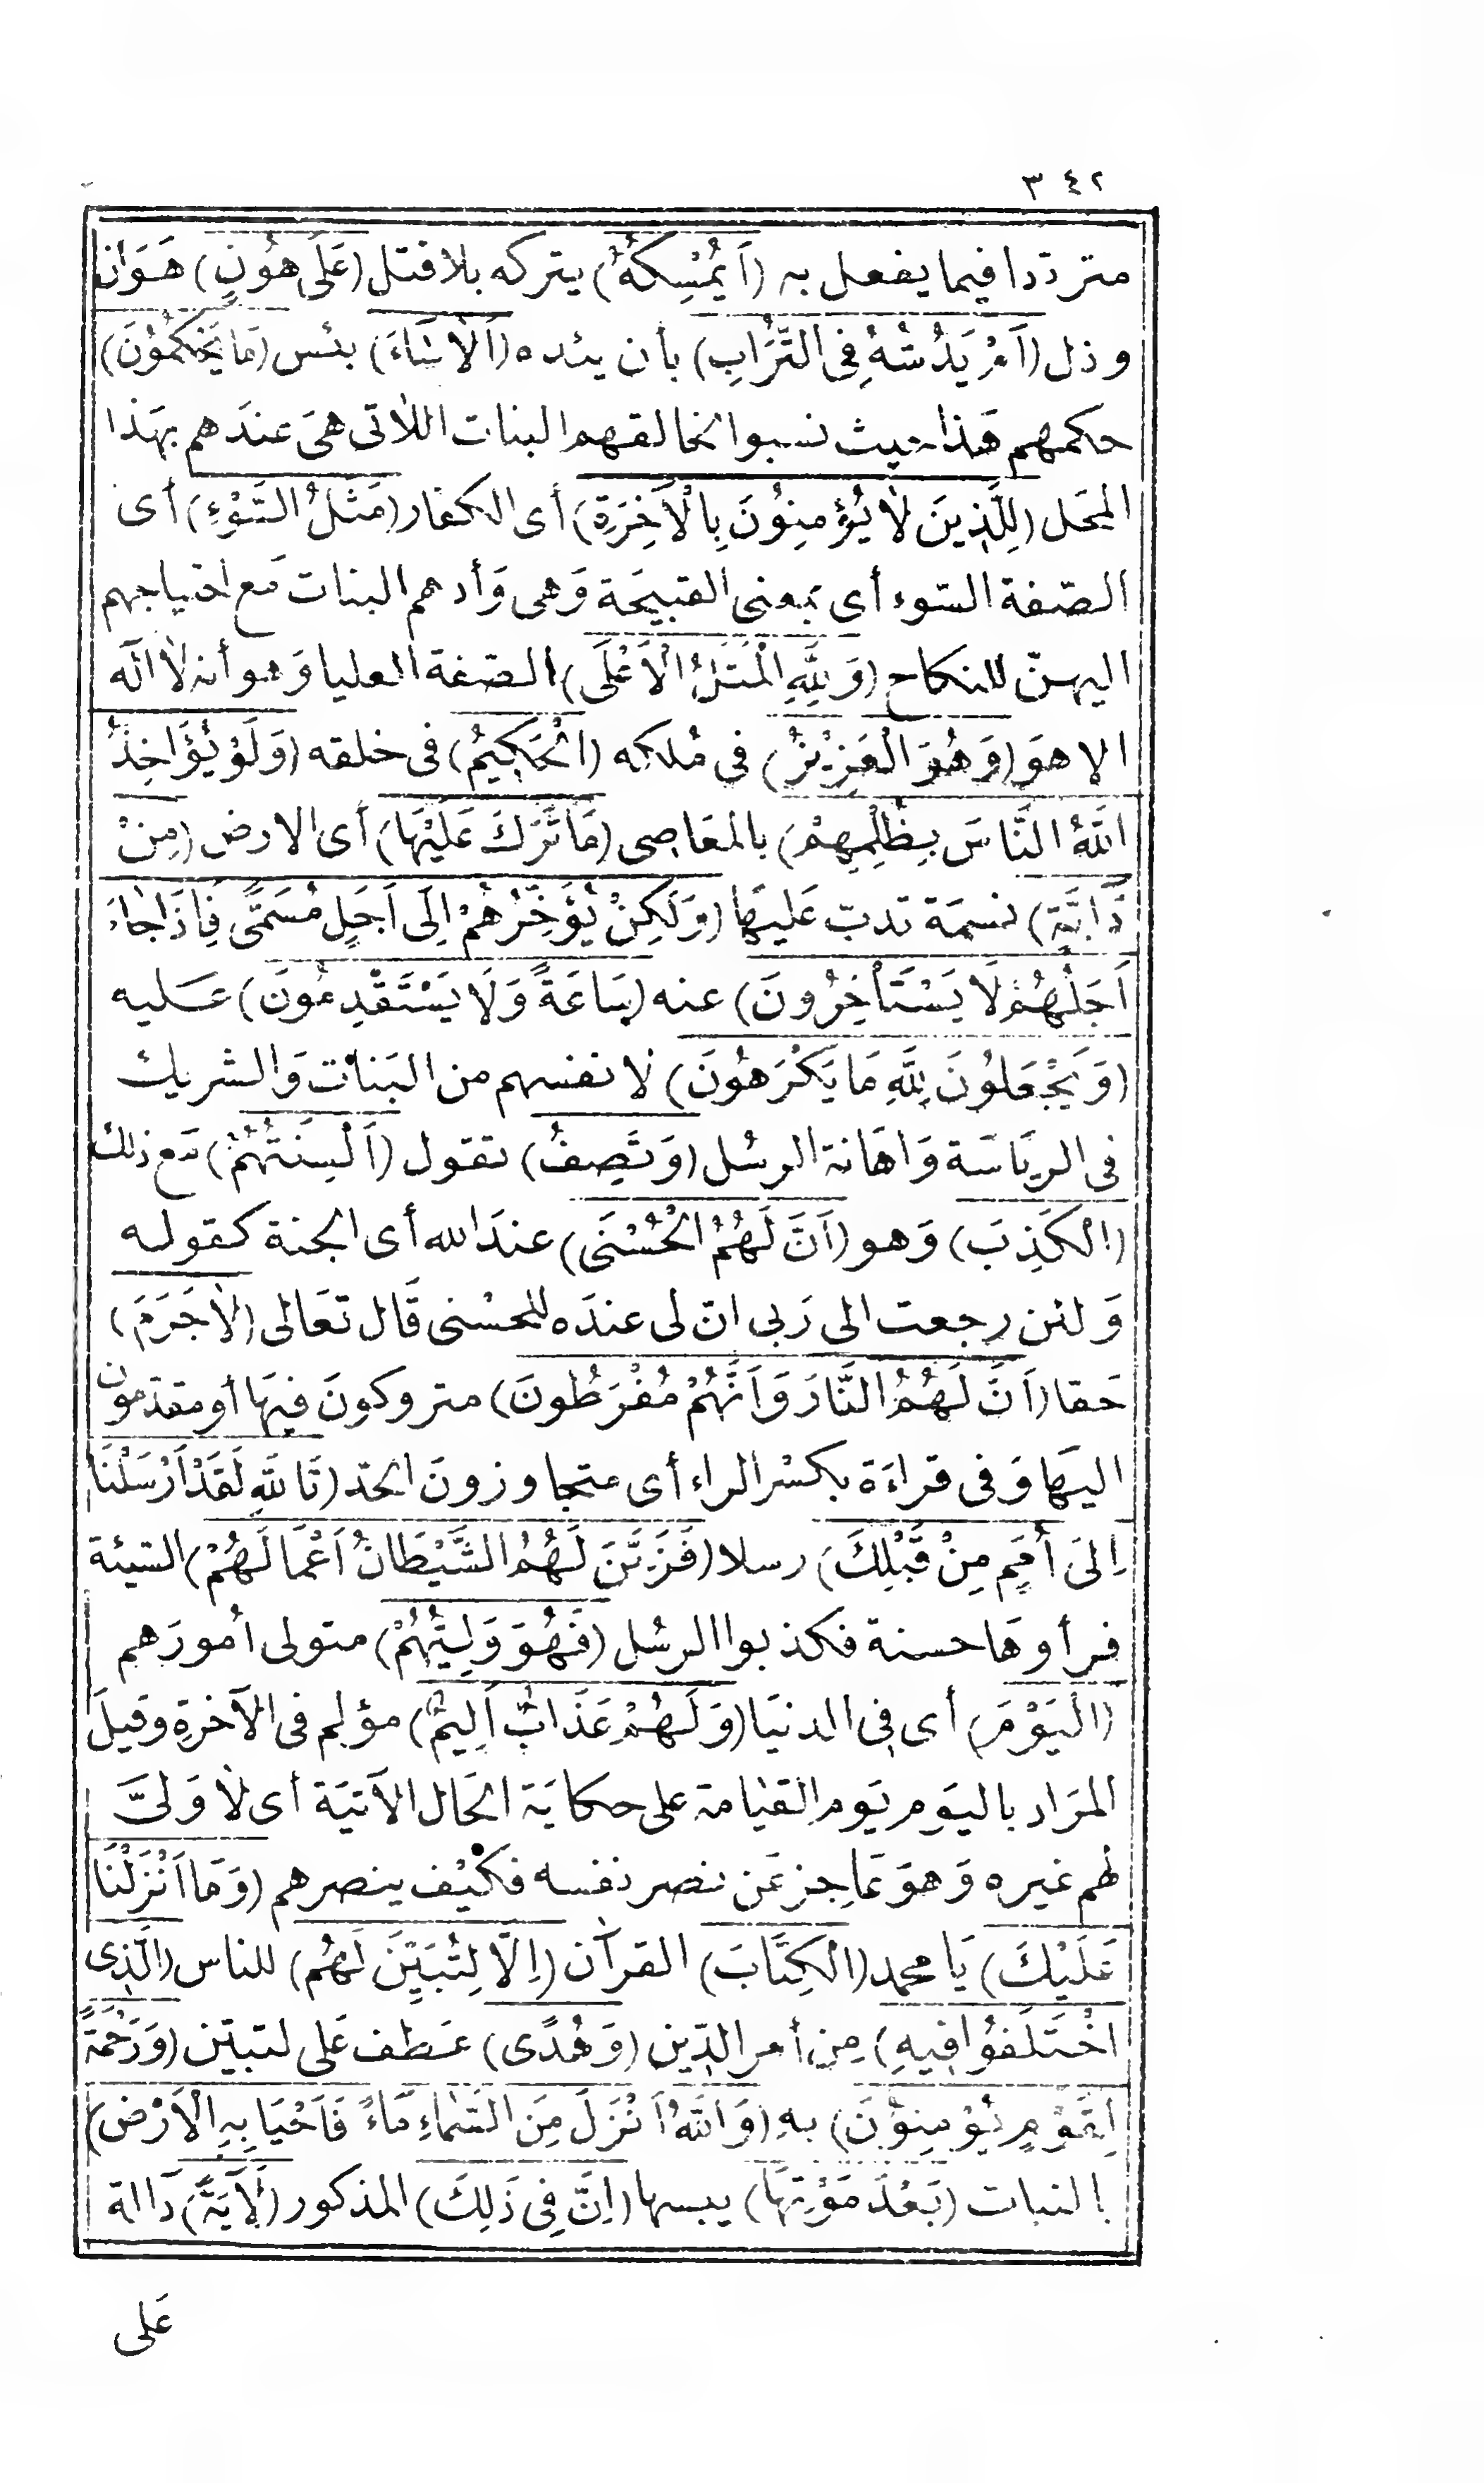 ٣٤٢
مترددا فيما يفعل به (أَيُمْسِكُهُ) يتركه بلا قتل (عَلَى هُونٍ) هَوَان
وذل (أَمْ يَدُسُّهُ فِى التُّرَابِ) بأن يئده (أَلَا سَاءَ) بئس (مَا يَحْكُمُونَ)
حكمهم هَذا حيث نسبوا لخالقهم البنات اللاتى هىَ عندَهم بهَذا
المحَل (لِلَّذِينَ لَا يُؤْمِنُونَ بِالْآخِرَةِ) أى الكفار (مَثَلُ السَّوْءِ) أى
الصّفة السّوء أى بمعنى القبيحَة وَهى وَأدهم البنات مَع احتياجهم
اليهنّ للنكاح (وَلِلَّهِ الْمَثَلُ الْأَعْلَى) الصّفة العليا وَهو أنه لَا الَه
الا هوَ (وَهُوَ الْعَزِيزُ) فى مُلكه (الْحَكِيمُ) فى خلقه (وَلَوْ يُؤَاخِذُ
اللَّهُ النَّاسَ بِظُلْمِهِمْ) بالمعَاصى (مَا تَرَكَ عَلَيْهَا) أى الارض (مِنْ
دَابَّةٍ) نسمَة تدبّ عَليهَا (وَلَكِنْ يُؤَخِّرُهُمْ إِلَى أَجَلٍ مُسَمًّى فَإِذَا جَاءَ
أَجَلُهُمْ لَا يَسْتَأْخِرُونَ) عنه (سَاعَةً وَلَا يَسْتَقْدِمُونَ) عَليه
(وَيَجْعَلُونَ لِلَّهِ مَا يَكْرَهُونَ) لانفسهم من البَنات وَالشريك
فى الريَاسَة وَاهَانة الرسُل (وَتَصِفُ) تقول (أَلْسِنَتُهُمُ) مَع ذلك
(الْكَذِبَ) وَهو (أَنَّ لَهُمُ الْحُسْنَى) عندَ الله أى الجنة كقوله
وَلئن رجعت الى رَبى انّ لى عندَه للحسْنى قَال تعَالى (لَاجَرَمَ)
حَقا (أَنَّ لَهُمُ النَّارَ وَأَنَّهُمْ مُفْرَطُونَ) متروكونَ فيهَا أو مقدّمون
اليهَا وَفى قراءَة بكسْر الراء أى متجاوزونَ الحدّ (تَاللَّهِ لَقَدْ أَرْسَلْنَا
إِلَى أُمَمٍ مِنْ قَبْلِكَ) رسلا (فَزَيَّنَ لَهُمُ الشَّيْطَانُ أَعْمَالَهُمْ) السّيئة
فرأوهَا حسنة فكذبوا الرسُل (فَهُوَ وَلِيُّهُمُ) متولى أمورَهم
(الْيَوْمَ) أى فى الدنيَا (وَلَهُمْ عَذَابٌ أَلِيمٌ) مؤلم فى الآخرةِ وقيلَ
المرَاد باليوَم يَوم القيَامة على حكايَة الحَال الآتيَة أى لَا وَلىَّ
لهم غيره وَهوَ عَاجز عَن نصر نفسه فكيْف ينصرهم (وَمَا أَنْزَلْنَا
عَلَيْكَ) يَا محمد (الْكِتَابَ) القرآن (إِلَّا لِتُبَيِّنَ لَهُمُ) للناس (الَّذِى
اخْتَلَفُوا فِيهِ) مِن أمر الدّين (وَهُدًى) عَطف عَلى لتبيّن (وَرَحْمَةً
لِقَوْمٍ يُؤْمِنُونَ) بهِ (وَاللَّهُ أَنْزَلَ مِنَ السَّمَاءِ مَاءً فَأَحْيَا بِهِ الْأَرْضَ)
بالنبات (بَعْدَ مَوْتِهَا) يبسها (إِنَّ فِى ذَلِكَ) المذكور (لَآيَةً) دَالة
عَلى